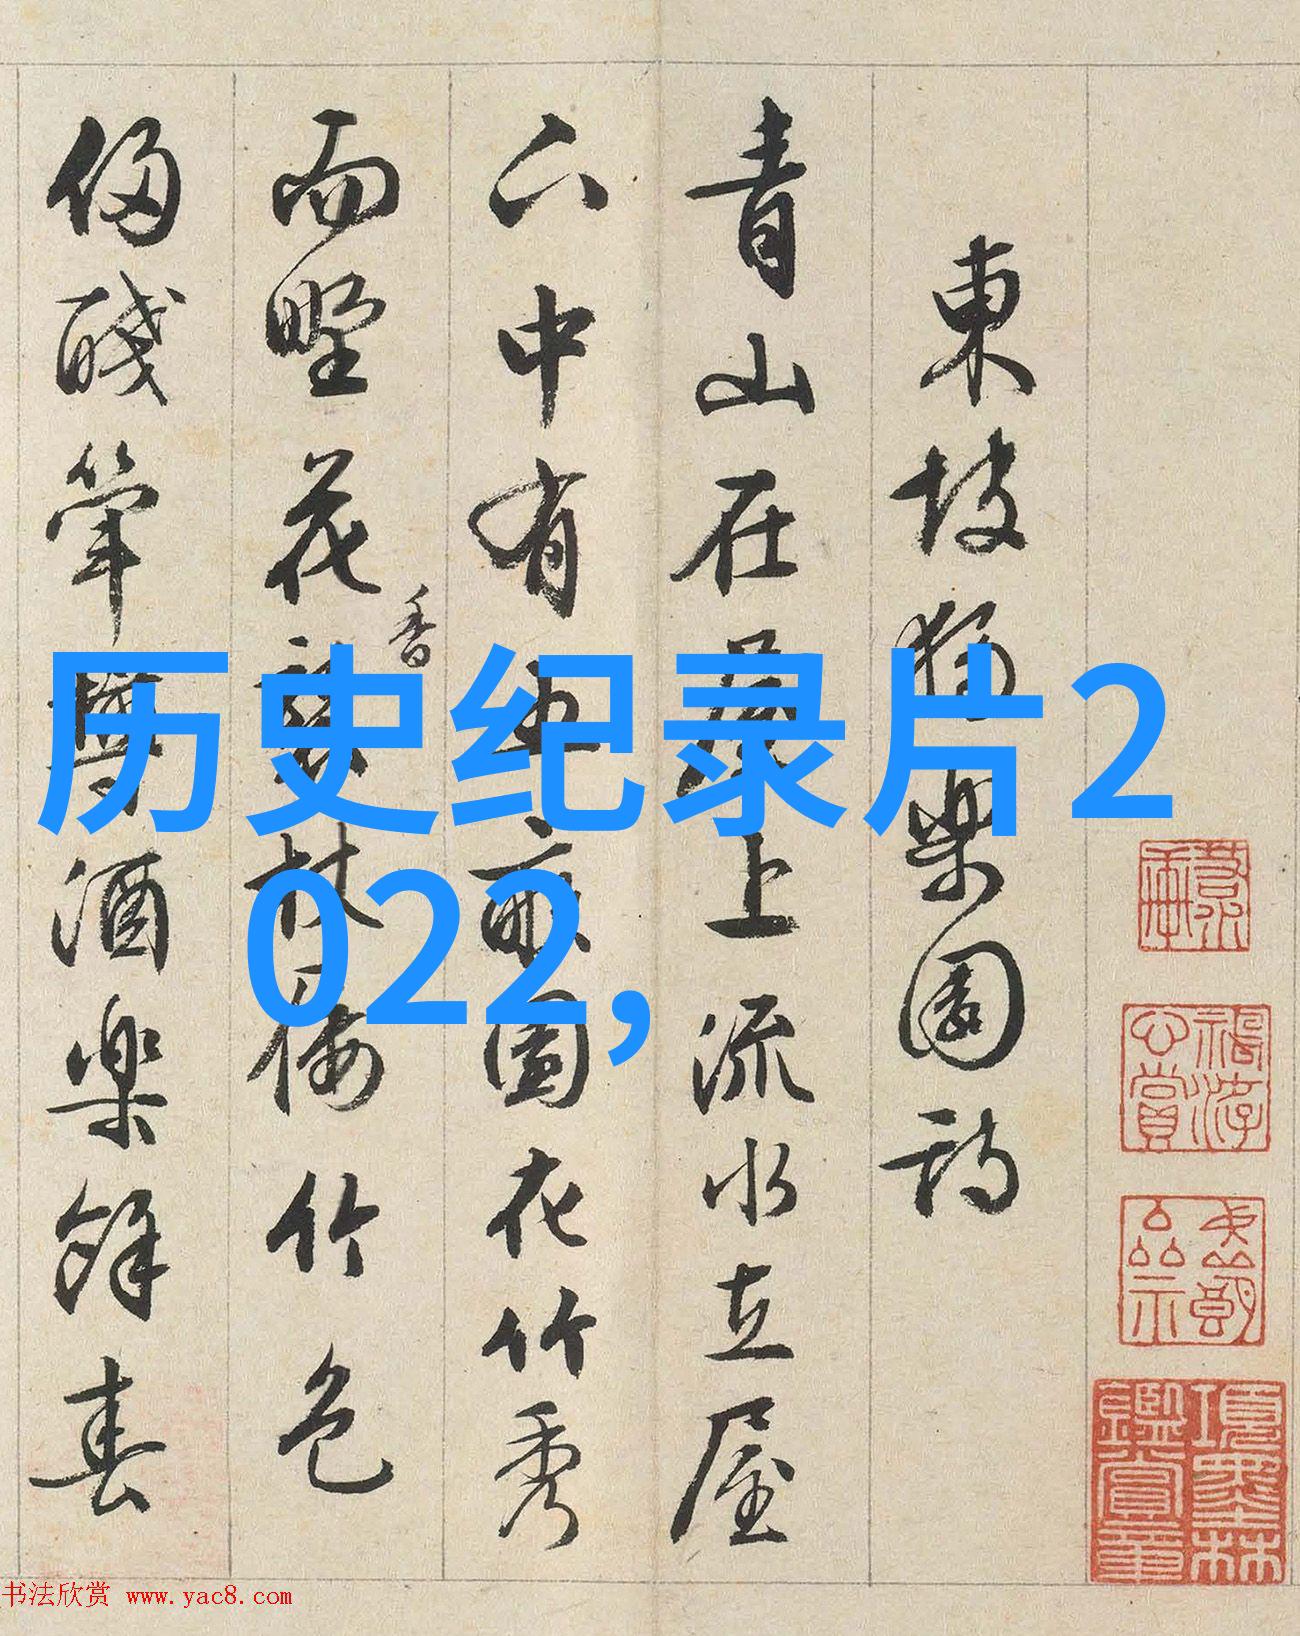 历史纪录片2
022,
東坡獨樂園詩
青山在屋上流水在屋
下中有五畝園花竹秀
而野花香襲杖屨竹色
侵醆斝樽酒樂餘春
項墨林鑑賞章
书法欣赏 www.yac8.com